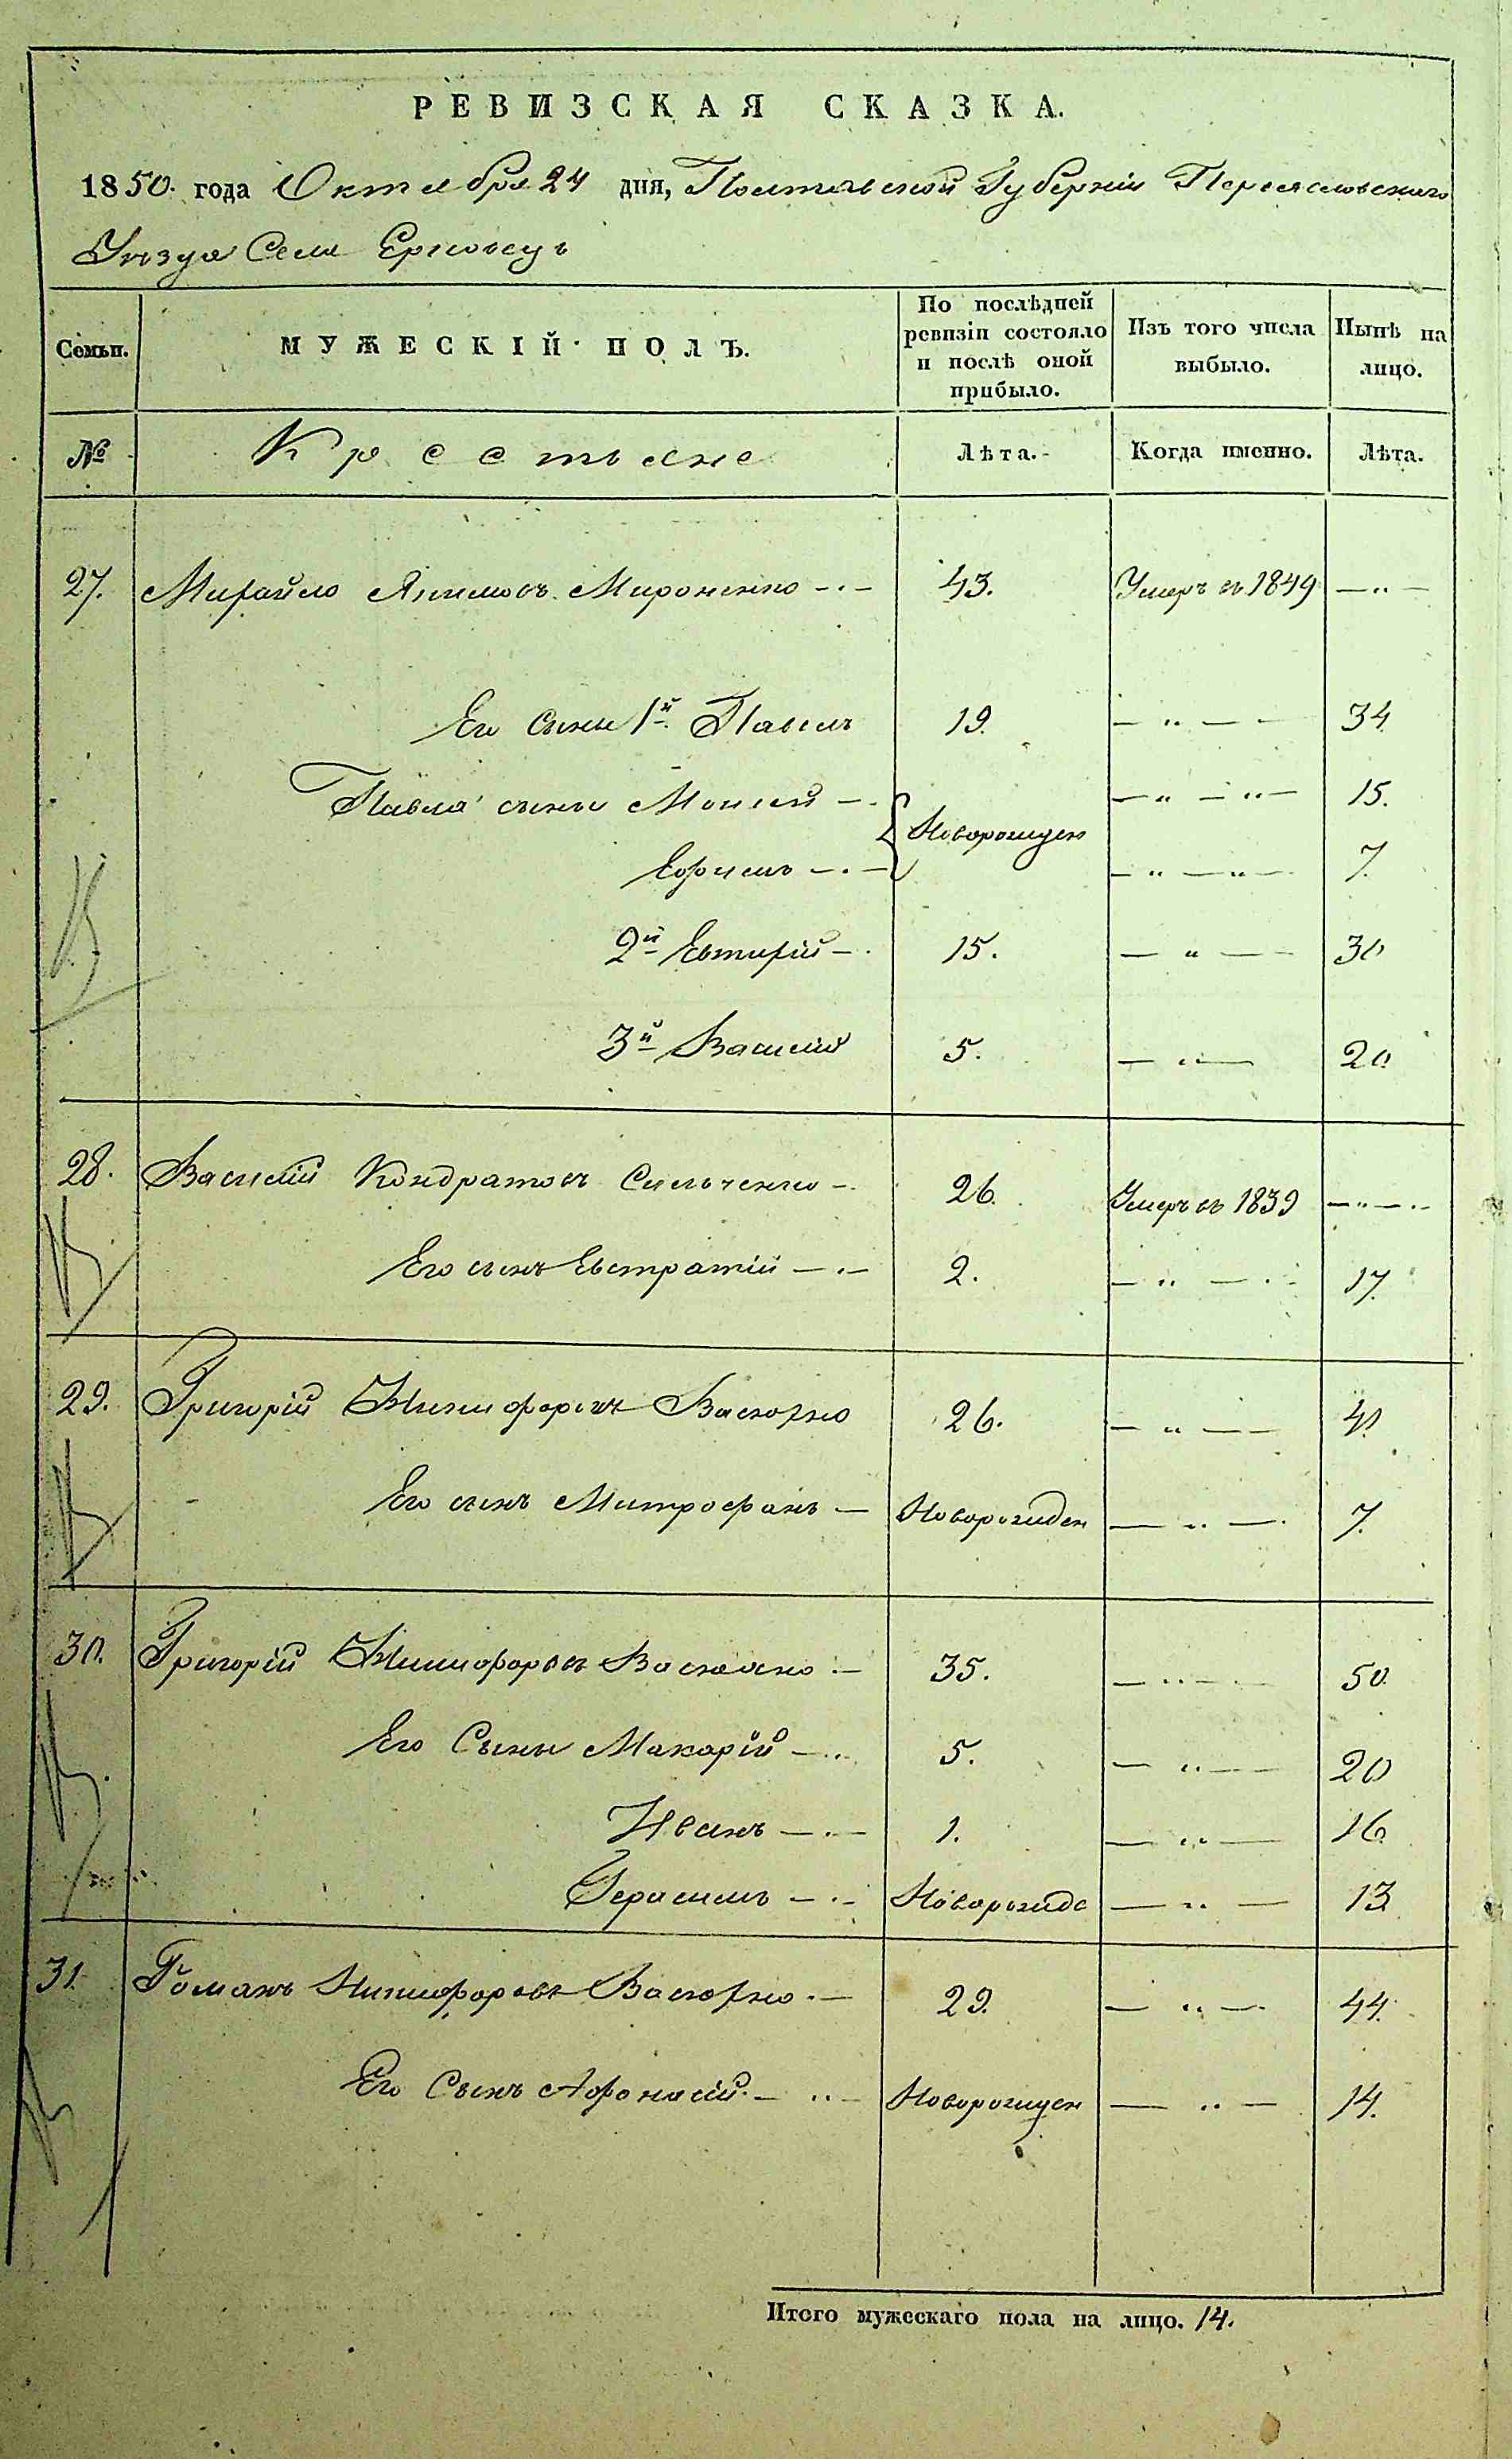 РЕВИЗСКАЯ СКАЗКА.
1850. года Октября 24 дня, Полтавской Губерніи Переяславскаго
Уѣзда Села Ерковецъ
Семьи. МУЖЕСКІЙ ПОЛЪ. По послѣдней ревизіи состояло и послѣ оной прибыло. Изъ того числа выбыло. Нынѣ на лицо.
№ Крестьяне Лѣта. Когда именно. Лѣта.
27. Михайло Якимовъ Мироненко 43. Умеръ въ 1849
Его сыны 1й Павелъ 19. 34
Павла сыны Моисей 15.
Новорожден
Ефимъ 7.
2й Евтихій 15. 30
3й Василій 5. 20
28. Василій Кондратовъ Сильченко 26. Умеръ въ 1839
Его сынъ Евстратій 2. 17.
29. Григорій Никифоровъ Васюхно 26. 41
Его сынъ Митрофанъ Новорожден 7.
30. Григорій Никифоровъ 35. 50
Его Сыны Макарій 5. 20
Иванъ 1. 16
Герасимъ Новорожде 13
31. Романъ Никифоровъ Васюхно 29. 44.
Его Сынъ Афонасій Новорожден 14.
Итого мужескаго пола на лицо. 14.